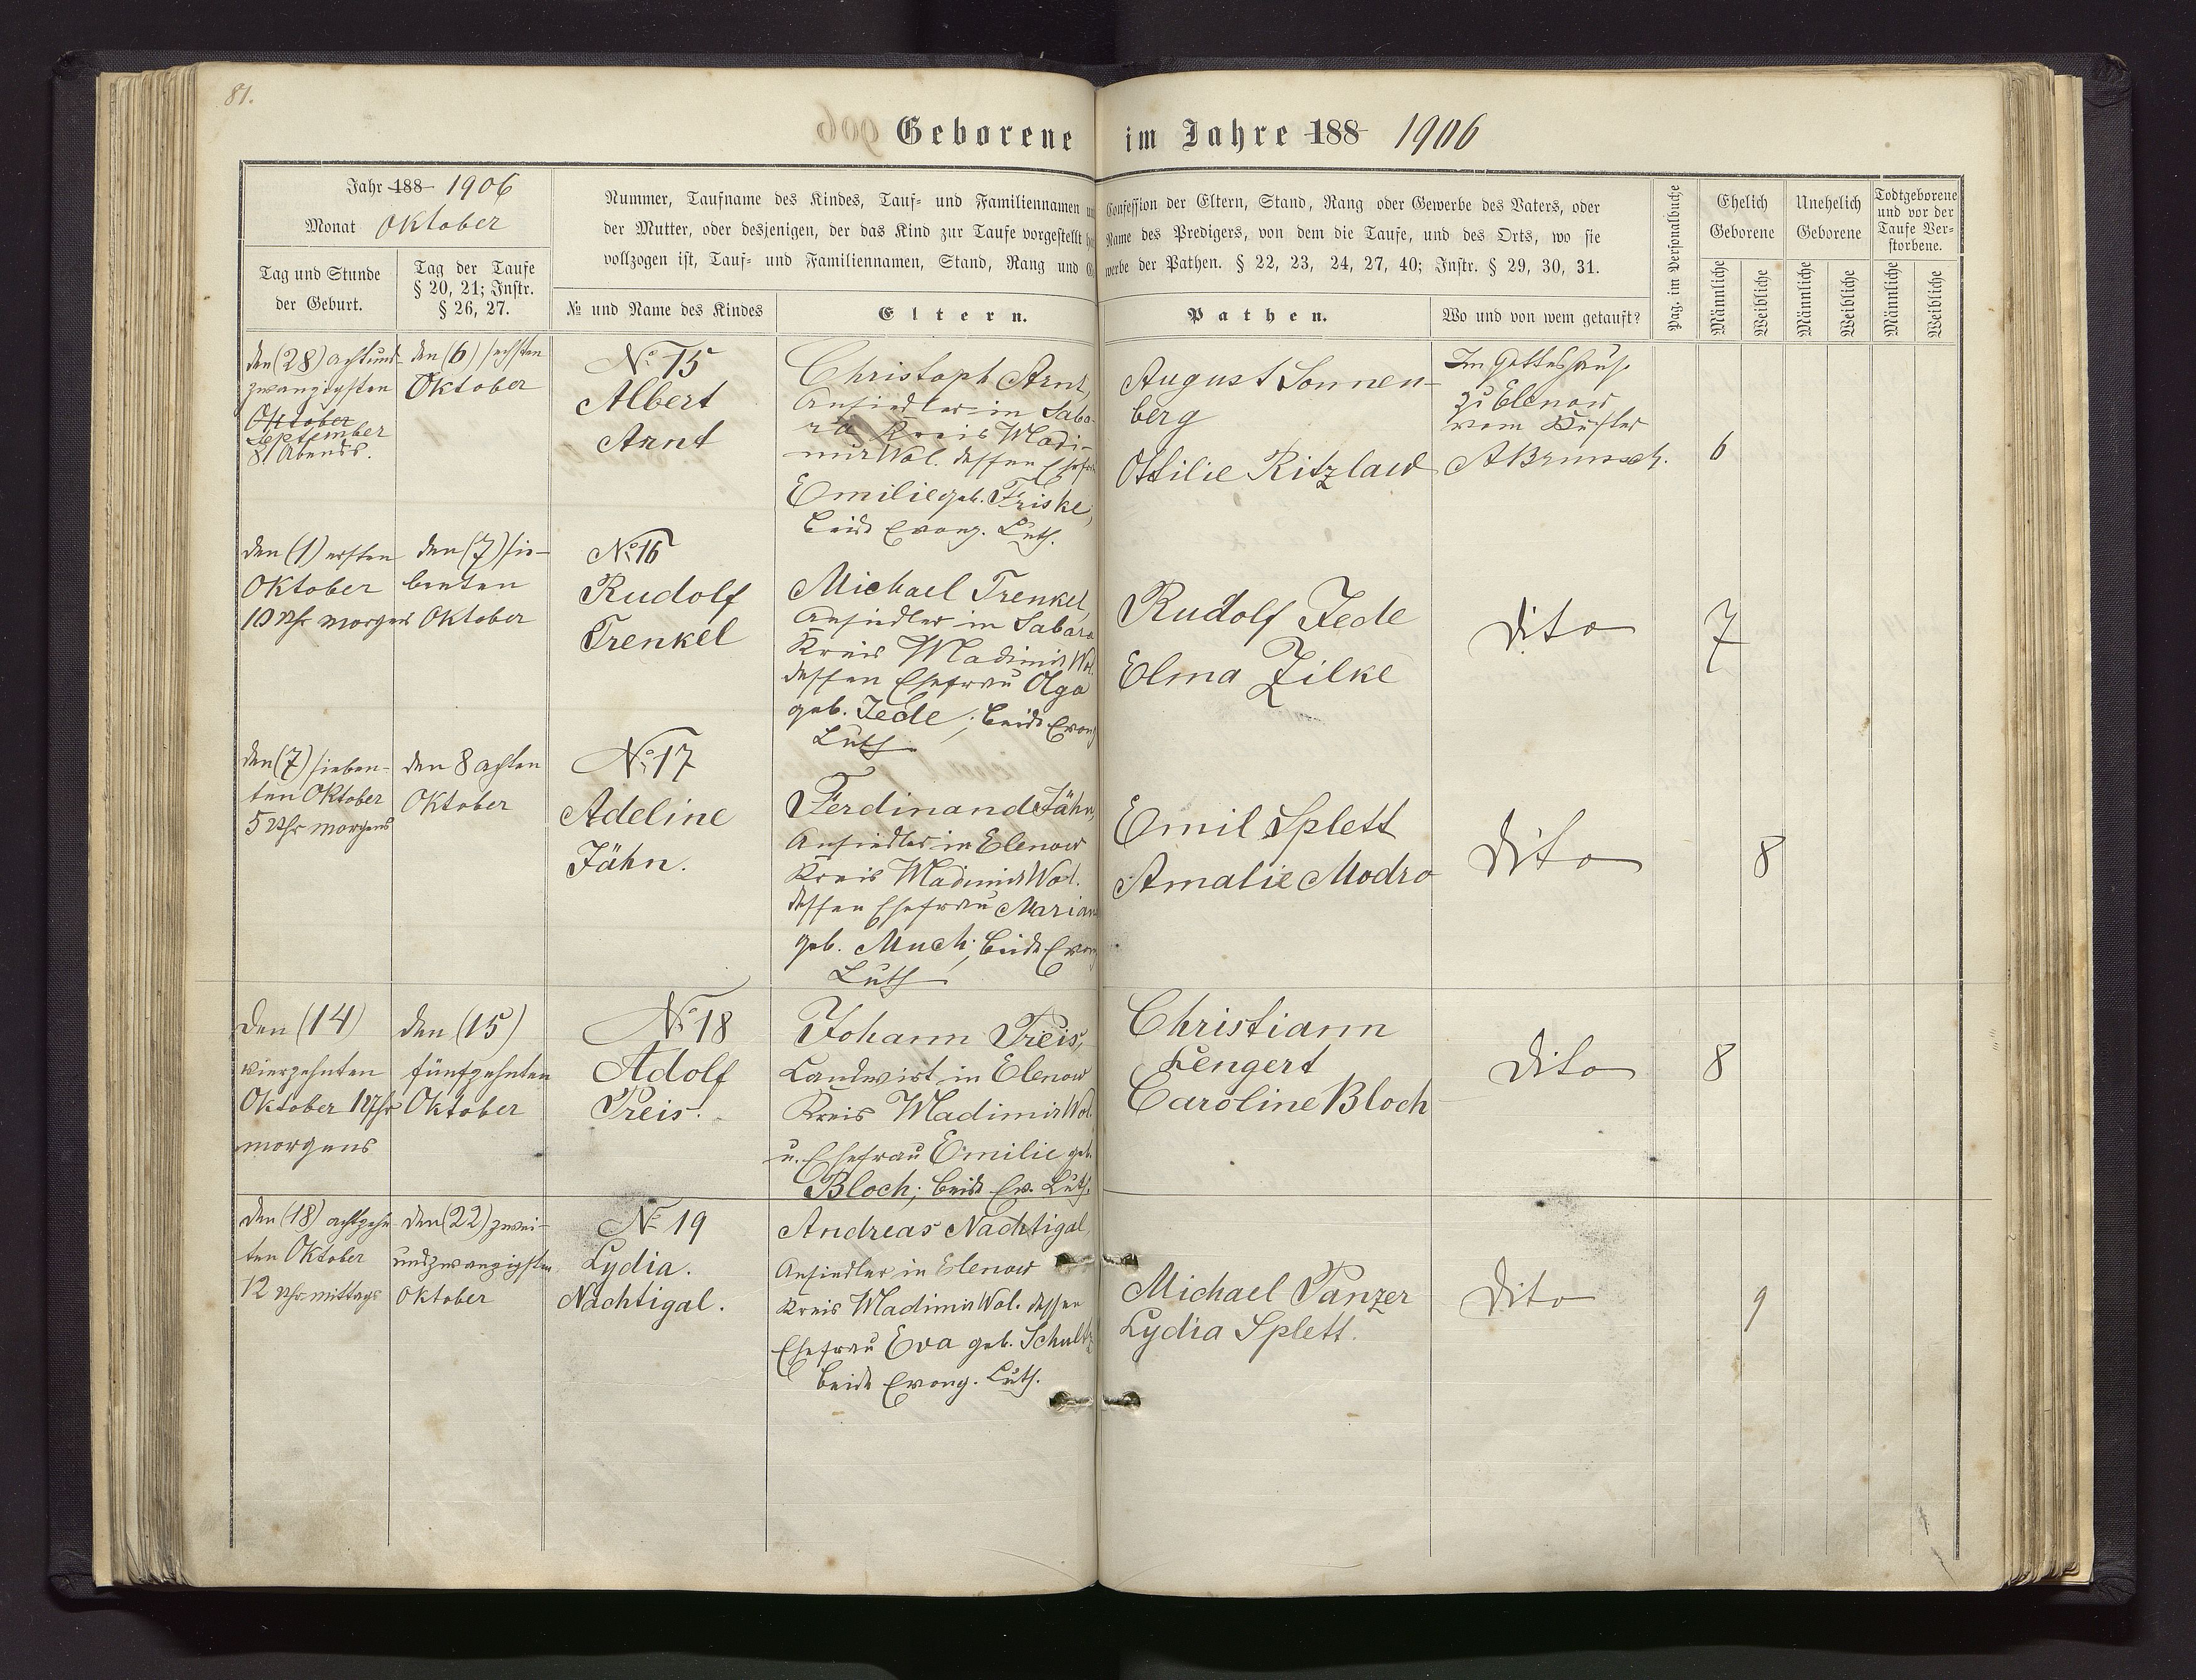 81.
Geborene im Jahre 188 1906
Jahr 188 1906
Monat Oktober
Tag und Stunde
der Geburt.
Tag der Taufe
§ 20, 21; Instr.
§ 26, 27.
Nummer, Taufname des Kindes, Tauf- und Familiennamen
der Mutter, oder desjenigen, der das Kind zur Taufe vorgestellt
vollzogen ist, Tauf- und Familiennamen, Stand, Rang und
Confession der Eltern, Stand, Rang oder Gewerbe des Vaters, oder
Name des Predigers, von dem die Taufe, und des Orts, wo sie
werbe der Pathen. § 22, 23, 24, 27, 40; Instr. § 29, 30, 31.
№ und Name des Kindes
Eltern.
Pathen.
Wo und von wem getauft?
Pag. im Personalbuche
Ehelich
Geborene
Unehelich
Geborene
Todtgeborene
und vor der
Taufe Ver-
storbene.
Männliche
Weibliche
Männliche
Weibliche
Männliche
Weibliche
den (28) achtund-
zwanzigsten
Oktober
September
8 Abends.
den (6) sechsten
Oktober
№ 15
Albert
Arnt
Christoph Arnt,
Ansiedler in Saba-
ra Kreis Wladi-
mir Wol. dessen Ehefrau
Emilie geb. Friske,
beide Evang. Luth.
August Sonnen-
berg
Ottilie Ritzlaw
Im Gotteshause
zu Elenow
vom Küster
6
den (1) ersten
Oktober
10 Uhr morgens
den (7) sie-
benten
Oktober
№ 16
Rudolf
Trenkel
Michael Trenkel,
Ansiedler in Sabara
Kreis Wladimir Wol.
dessen Ehefrau Olga
geb. Jede; beide Evang
Luth
Rudolf Jede
Elma Zilke
Dito
7
den (7) sieben-
ten Oktober
5 Uhr morgens
den 8 achten
Oktober
№ 17
Adeline
Jähn.
Ferdinand Jähn,
Ansiedler in Elenow
Kreis Wladimir Wol.
dessen Ehefrau Marian
geb. Much; beide Evang
Luth
Emil Splett
Amalie Modro
Dito
8
Den (14)
vierzehnten
Oktober 1 Uhr
morgens
den (15)
fünfzehnten
Oktober
№ 18
Adolf
Preis.
Johann Preis,
Landwirt in Elenow
Kreis Wladimir Wol.
u. Ehefrau Emilie geb.
Bloch; beide Ev. Luth.
Christiann
Lengert
Caroline Bloch
Dito
8
den (18) achtzehn-
ten Oktober
12 Uhr mittags
den (22) zwei-
undzwanzigsten
Oktober
№ 19
Lydia.
Nachtigal.
Andreas Nachtigal,
Ansiedler in Elenow
Kreis Wladimir Wol. dessen
Ehefrau Eva geb. Schultz
beide Evang. Luth.
Michael Panzer
Lydia Splett.
Dito
9